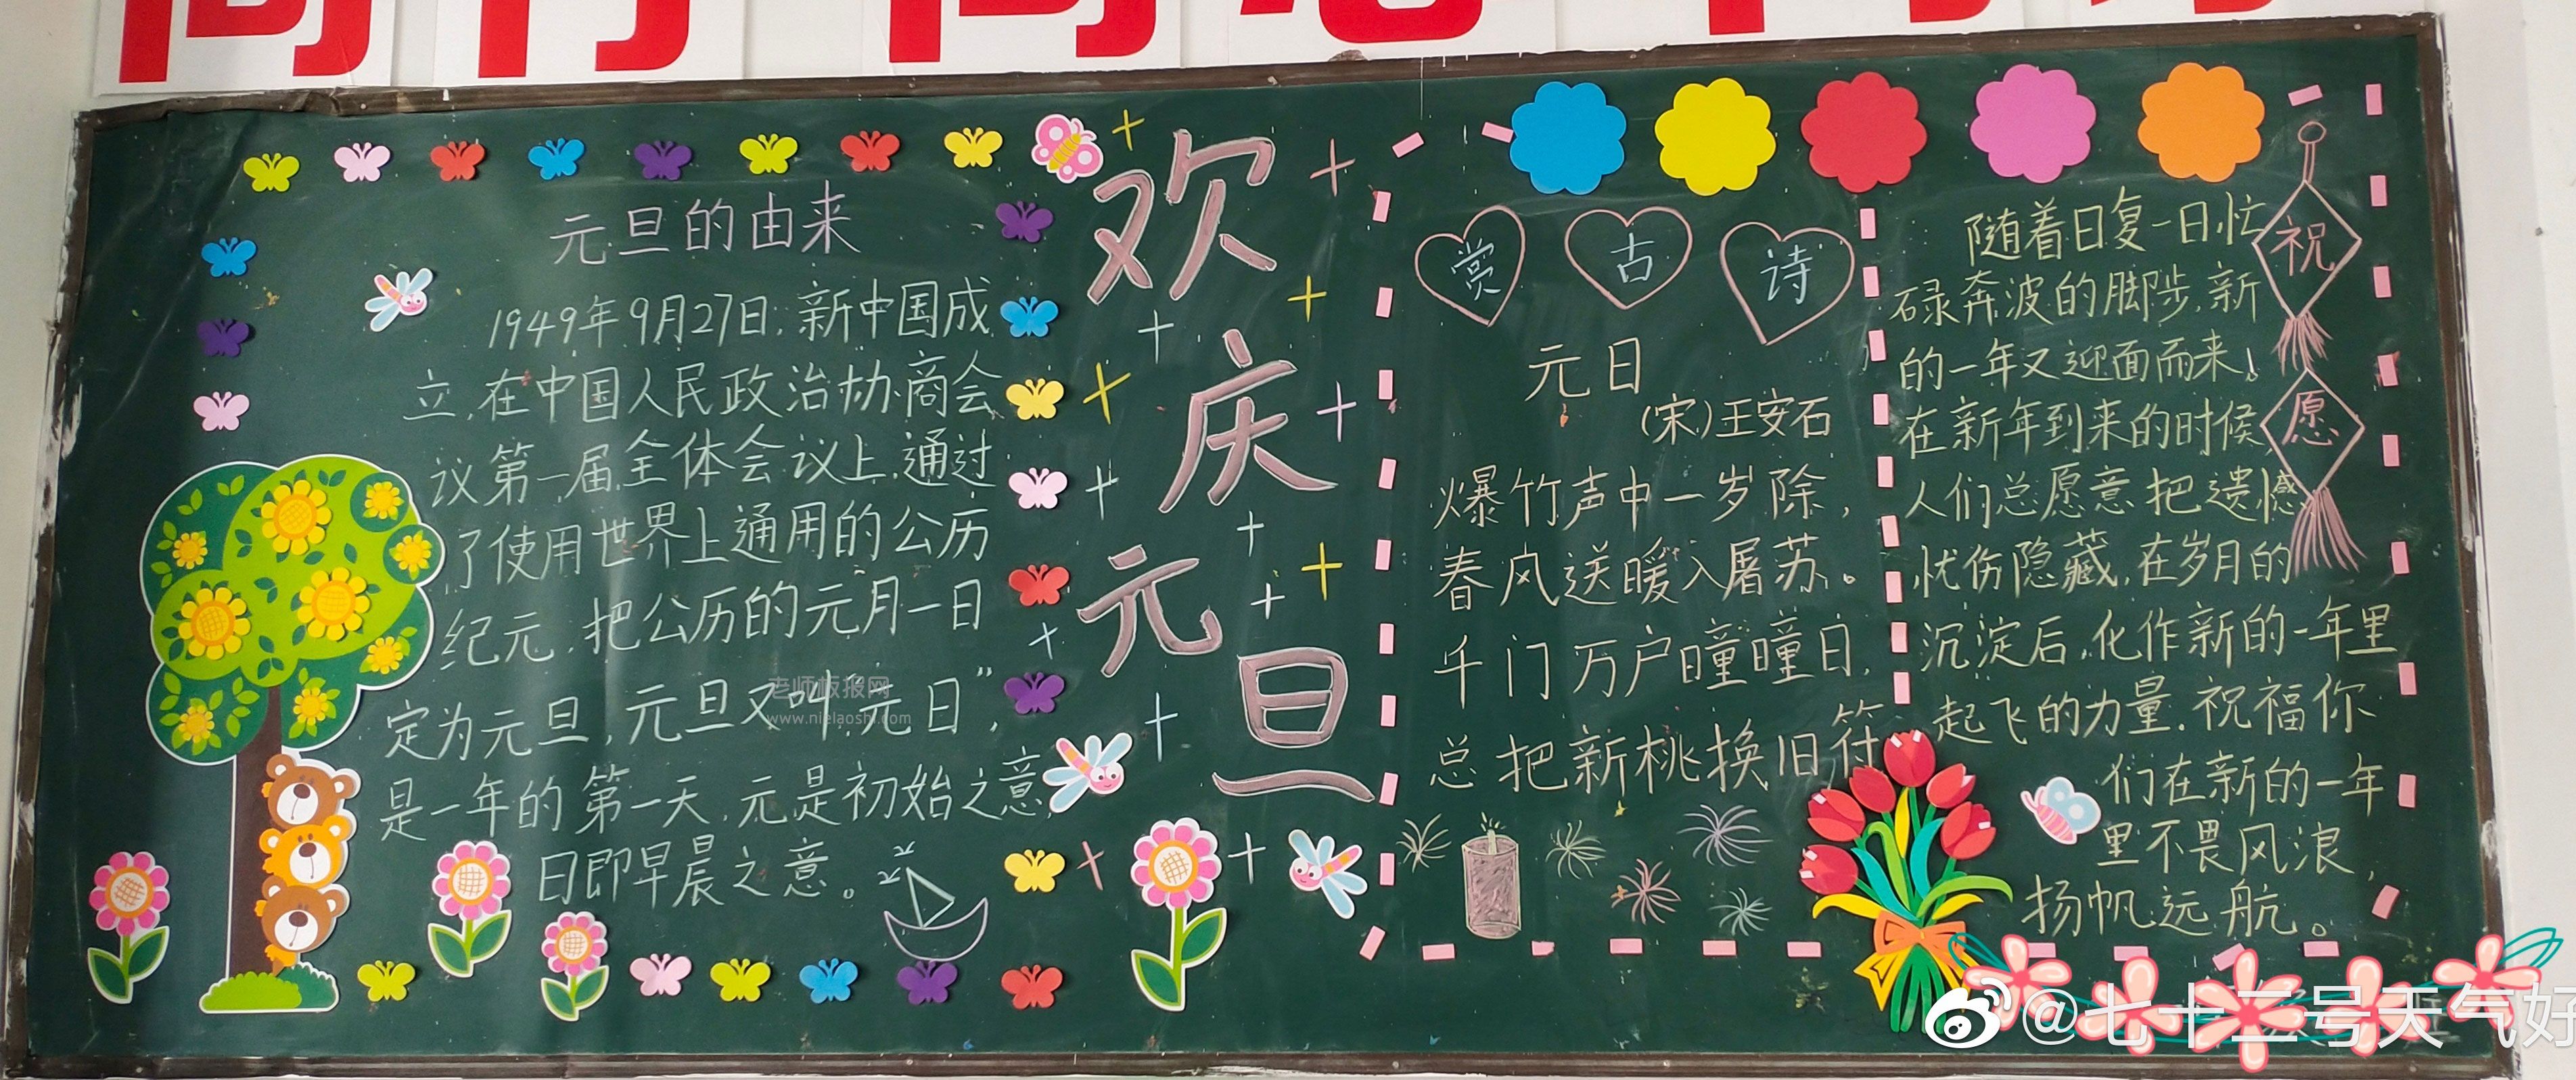 元旦的由来
1949年9月27日,新中国成
立,在中国人民政治协商会
议第一届全体会议上,通过
了使用世界上通用的公历
纪元,把公历的元月一日
定为元旦,元旦又叫“元日”,
是一年的第一天,元是初始之意,
日即早晨之意。
老师板报网
www.nielaoshi.com
欢
庆
元
旦
赏古诗
元日
(宋)王安石
爆竹声中一岁除,
春风送暖入屠苏。
千门万户曈曈日,
总把新桃换旧符
祝
愿
随着日复一日忙
碌奔波的脚步,新
的一年又迎面而来!
在新年到来的时候,
人们总愿意把遗憾
忧伤隐藏,在岁月的
沉淀后,化作新的一年里
起飞的力量.祝福你
们在新的一年
里不畏风浪,
扬帆远航。
@七十二号天气好